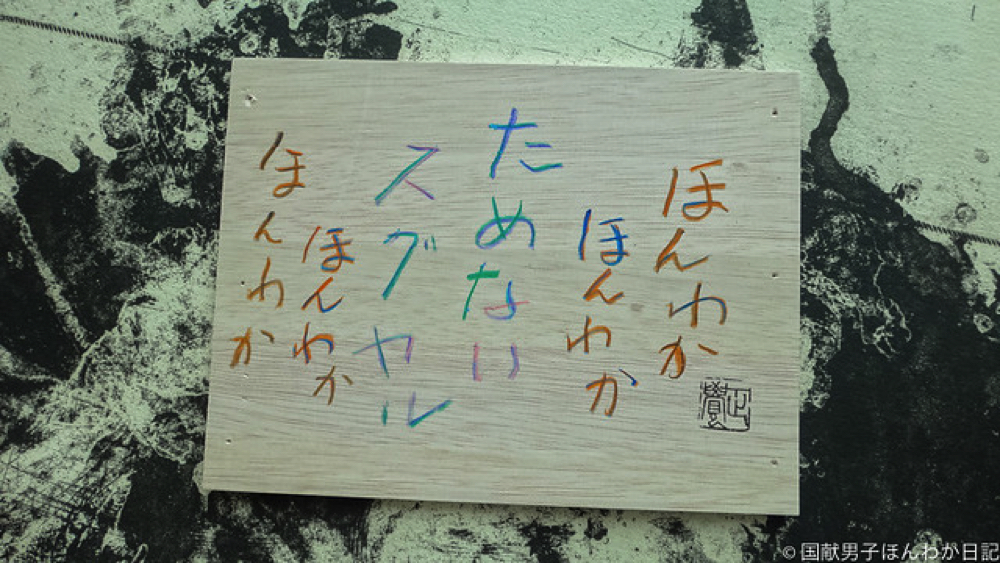 ほんわか
ほんわか
ためない
スグヤル
ほんわか
ほんわか
© 国献男子ほんわか日記